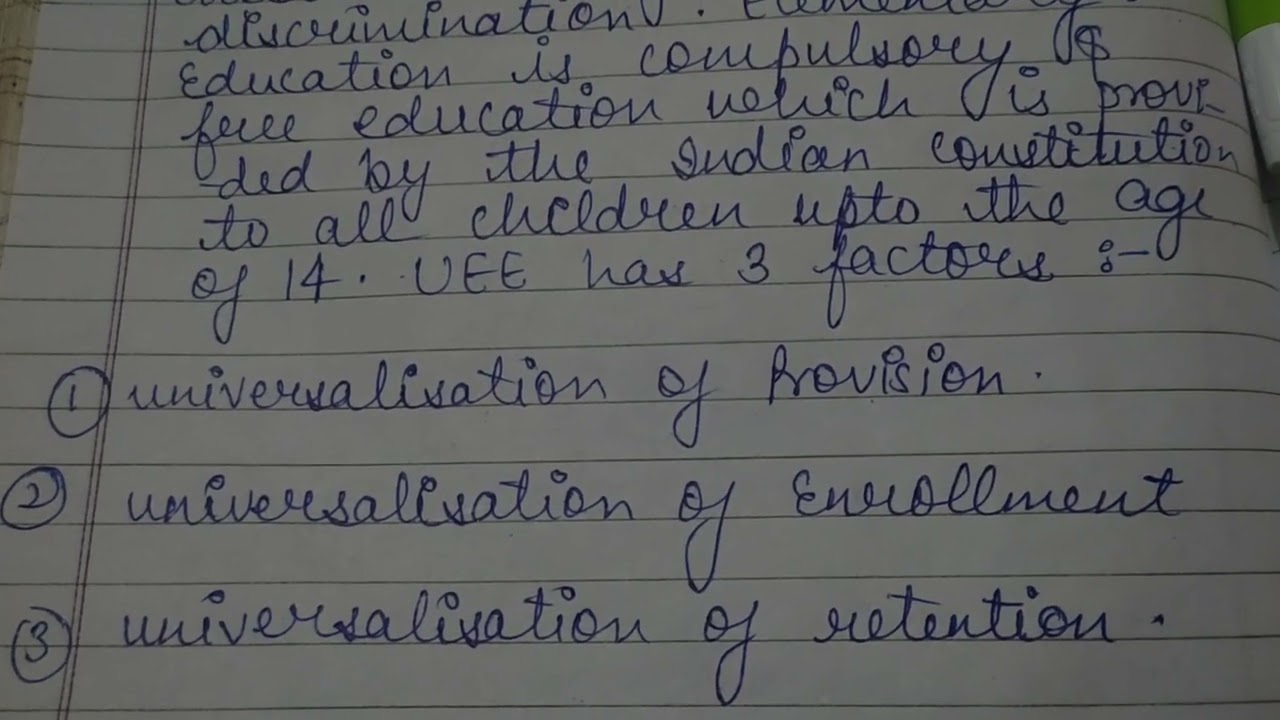 discrimination. Elementary
Education is compulsory &
free education which is provi-
-ded by the Indian constitution
to all children upto the age
of 14. UEE has 3 factors :-
① universalisation of Provision.
② universalisation of Enrollment
③ universalisation of retention.